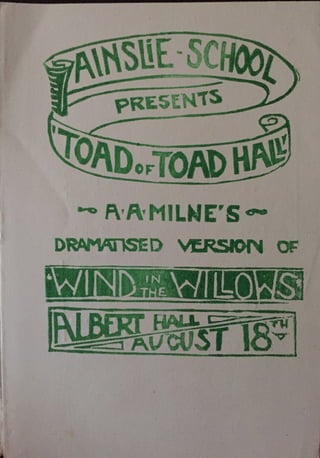 AINSLIE-SCHOOL
PRESENTS
'TOAD OF TOAD HALL'
~ A·A·MILNE'S ~
DRAMATISED VERSION OF
'WIND IN THE WILLOWS'
ALBERT HALL
AUGUST 18TH